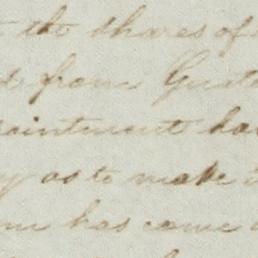 the shares of
from
ointment ha
y as to make
has came